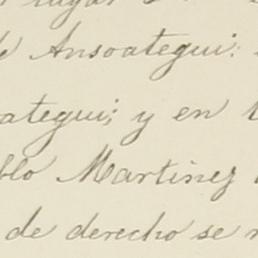 lugar
de Ansoategui:
ategui; y en
blo Martinez
de derecho se